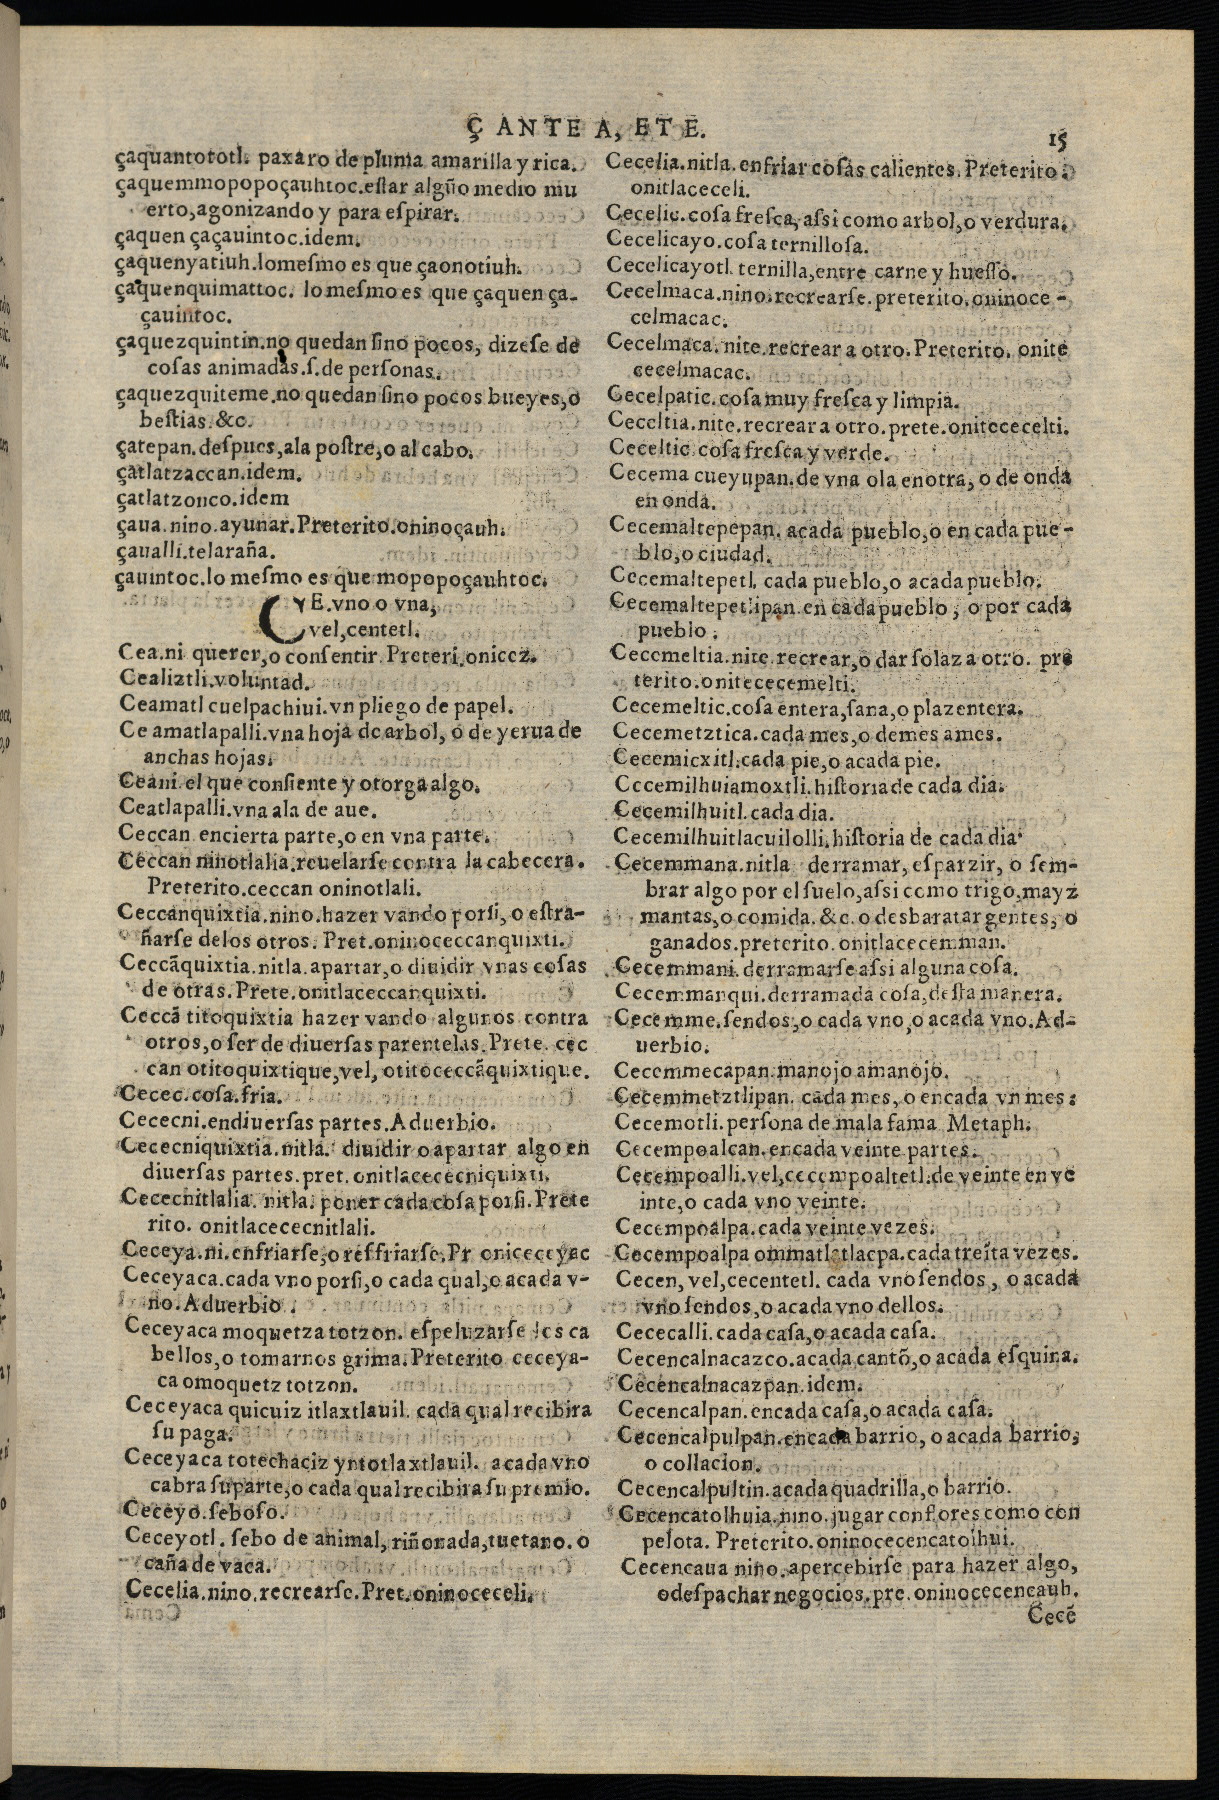 Ç ANTE A, ET E.
15
çaquantototl. paxaro de pluma amarilla y rica.
çaquemmopopoçauhtoc.eſtar algũo medio mu
erto,agonizando y para eſpirar.
çaquen çaçauintoc.idem.
çaquenyatiuh.lomeſmo es que çaonotiuh.
çaquenquimattoc. lo meſmo es que çaquen ça-
çauintoc.
çaquezquintin.no quedan ſino pocos, dizeſe de
coſas animadas.ſ.de perſonas.
çaquezquiteme.no quedan ſino pocos bueyes,o
beſtias.&c.
çatepan.deſpues,ala poſtre,o al cabo.
çatlatzaccan.idem.
çatlatzonco.idem
çaua.nino.ayunar.Preterito.oninoçauh.
çaualli.telaraña.
çauintoc.lo meſmo es que mopopoçauhtoc.
CE.vno o vna,
vel,centetl.
Cea.ni querer,o conſentir Preteri.onicez.
Cealiztli.voluntad.
Ceamatl cuelpachiui.vn pliego de papel.
Ce amatlapalli.vna hoja de arbol, o de yerua de
anchas hojas.
Ceani.el que conſiente y otorga algo.
Ceatlapalli.vna ala de aue.
Ceccan encierta parte,o en vna parte.
Ceccan ninotlalia.reuelarſe contra la cabecera.
Preterito.ceccan oninotlali.
Ceccanquixtia.nino.hazer vando porſi, o eſtra-
ñarſe delos otros. Pret.oninoceccanquixti.
Ceccãquixtia.nitla.apartar,o diuidir vnas coſas
de otras.Prete.onitlaceccanquixti.
Ceccã titoquixtia hazer vando algunos contra
otros,o ſer de diuerſas parentelas.Prete. cec
can otitoquixtique,vel, otitoceccãquixtique.
Cecec.coſa.fria.
Cececni.endiuerſas partes.Aduerbio.
Cececniquixtia.nitla. diuidir o apartar algo en
diuerſas partes.pret.onitlacececniquixti.
Cececnitlalia. nitla. poner cada coſa porſi.Prete
rito. onitlacececnitlali.
Ceceya.ni.enfriarſe,o reſfriarſe.Pr oniceceyac
Ceceyaca.cada vno porſi,o cada qual,o acada v-
no.Aduerbio.
Ceceyaca moquetza totzon. eſpeluzarſe los ca
bellos,o tomarnos grima.Preterito ceceya-
ca omoquetz totzon.
Ceceyaca quicuiz itlaxtlauil. cada qual recibira
ſu paga.
Ceceyaca totechaciz yntotlaxtlauil. acada vno
cabra ſuparte,o cada qual recibira ſu premio.
Ceceyo.ſeboſo.
Ceceyotl. ſebo de animal, riñonada,tuetano.o
caña de vaca.
Cecelia.nino.recrearſe.Pret.oninoceceli.
Cecelia.nitla.enfriar coſas calientes.Preterito.
onitlaceceli.
Cecelic.coſa freſca, aſsi como arbol,o verdura.
Cecelicayo.coſa ternilloſa.
Cecelicayotl. ternilla,entre carne y hueſſo.
Cecelmaca.nino.recrearſe.preterito.oninoce-
celmacac.
Cecelmaca.nite.recrear a otro.Preterito. onite
cecelmacac.
Cecelpatic.coſa muy freſca y limpia.
Ceceltia.nite.recrear a otro.prete.onitececelti.
Ceceltic.coſa freſca y verde.
Cecema cueyupan.de vna ola en otra, o de onda
en onda.
Cecemaltepepan. acada pueblo,o en cada pue-
blo,o ciudad.
Cecemaltepetl. cada pueblo,o acada pueblo.
Cecemaltepetlipan.en cada pueblo, o por cada
pueblo.
Cecemeltia.nite.recrear,o dar ſolaz a otro. pre
terito.onitececemelti.
Cecemeltic.coſa entera,ſana,o plazentera.
Cecemetztica.cada mes,o demes ames.
Cecemicxitl.cada pie,o acada pie.
Cecemilhuiamoxtli.hiſtoria de cada dia.
Cecemilhuitl.cada dia.
Cecemilhuitlacuilolli.hiſtoria de cada dia.
Cecemmana.nitla derramar, eſparzir, o ſem-
brar algo por el ſuelo,aſsi como trigo,mayz
mantas,o comida.&c.o desbaratar gentes, o
ganados.preterito.onitlacecemman.
Cecemmani.derramarſe aſsi alguna coſa.
Cecemmanqui.derramada coſa,deſta manera.
Cecemme.ſendos,o cada vno,o acada vno.Ad-
uerbio.
Cecemmecapan.manojo amanojo.
Cecemmetztlipan. cada mes, o encada vn mes.
Cecemotli.perſona de mala fama Metaph.
Cecempoalcan.encada veinte partes.
Cecempoalli.vel,cecempoaltetl.de veinte en ve
inte,o cada vno veinte.
Cecempoalpa.cada veinte vezes.
Cecempoalpa ommatlatlacpa.cada treĩta vezes.
Cecen, vel,cecentetl. cada vno ſendos, o acada
vno ſendos,o acada vno dellos.
Cececalli.cada caſa,o acada caſa.
Cecencalnacazco.acada cantõ,o acada eſquina.
Cecencalnacazpan.idem.
Cecencalpan.encada caſa,o acada caſa.
Cecencalpulpan.encada barrio, o acada barrio,
o collacion.
Cecencalpultin.acada quadrilla,o barrio.
Cecencatolhuia.nino.jugar con flores como con
pelota. Preterito.oninocecencatolhui.
Cecencaua nino.apercebirſe para hazer algo,
odeſpachar negocios.pre.oninocecencauh.
Cecẽ